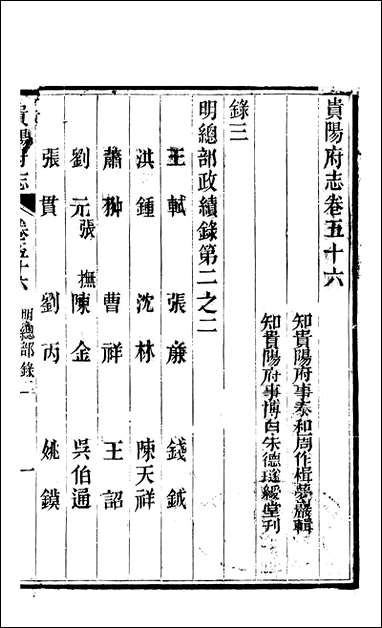 貴陽府志卷五十六
知貴陽府事泰和周作楫夢巖輯
知貴陽府事博白朱德璲綬堂刊
錄三
明總部政績錄第二之二
王軾 張廉 錢鉞
洪鍾 沈林 陳天祥
蕭翀 曹祥 王詔
劉元 張撫 陳金 吳伯通
張貫 劉丙 姚鏌
貴陽府志 卷五十六 明總部錄二 一